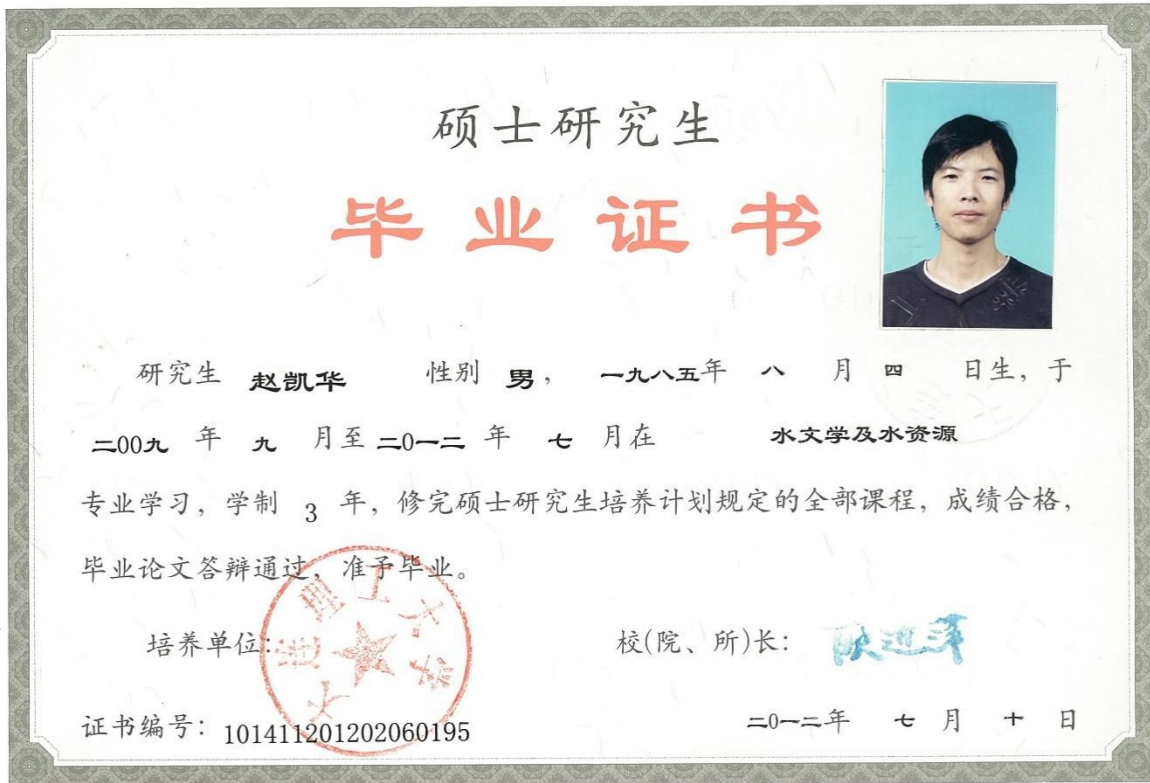 硕士研究生
毕业证书
研究生 赵凯华 性别 男, 一九八五年 八 月 四 日生, 于
二00九 年 九 月至 二0一二 年 七 月在 水文学及水资源
专业学习, 学制 3 年, 修完硕士研究生培养计划规定的全部课程, 成绩合格,
毕业论文答辩通过, 准予毕业。
大连理工大学
培养单位: 校(院、所)长:
证书编号: 101411201202060195 二0一二年 七 月 十 日